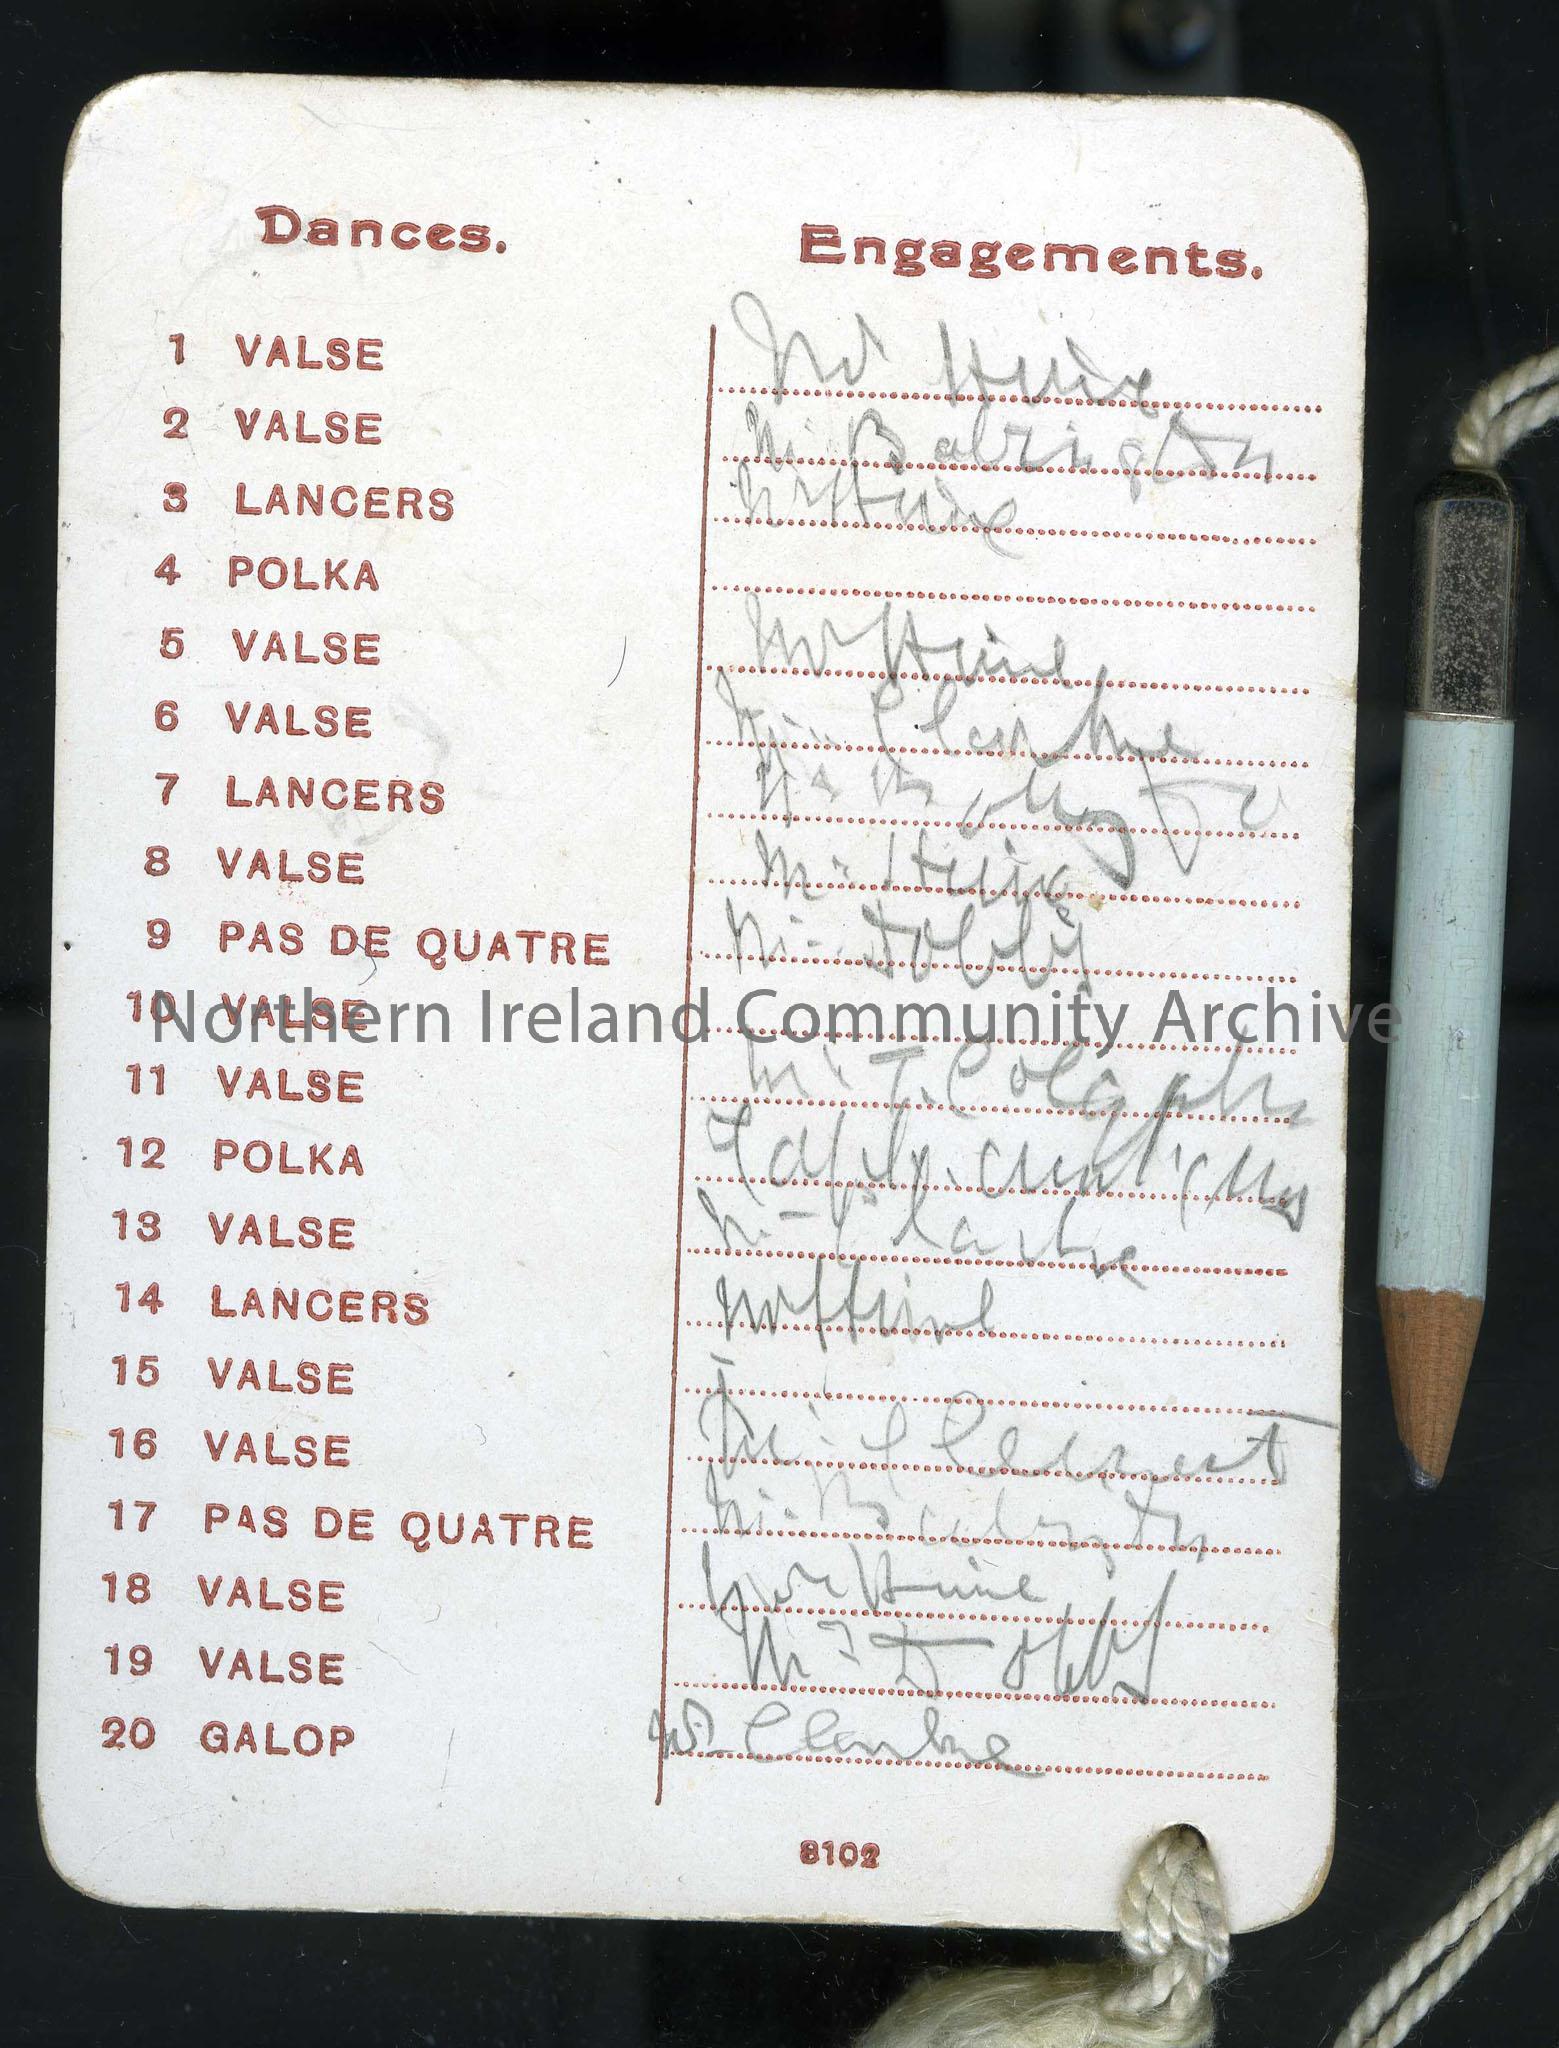 Dances. Engagements.
1 VALSE Mr Huie
2 VALSE Mr Babington
3 LANCERS Mr Huie
4 POLKA
5 VALSE Mr Huie
6 VALSE Mr Clarke
7 LANCERS Mr
8 VALSE Mr Huie
9 PAS DE QUATRE Mr Dobby
10 VALSE
11 VALSE Mr T.
12 POLKA
13 VALSE Mr Clarke
14 LANCERS Mr Huie
15 VALSE
16 VALSE
17 PAS DE QUATRE Mr Babington
18 VALSE Mr Huie
19 VALSE Mr Dobby
20 GALOP Mr Clarke
8102
Northern Ireland Community Archive